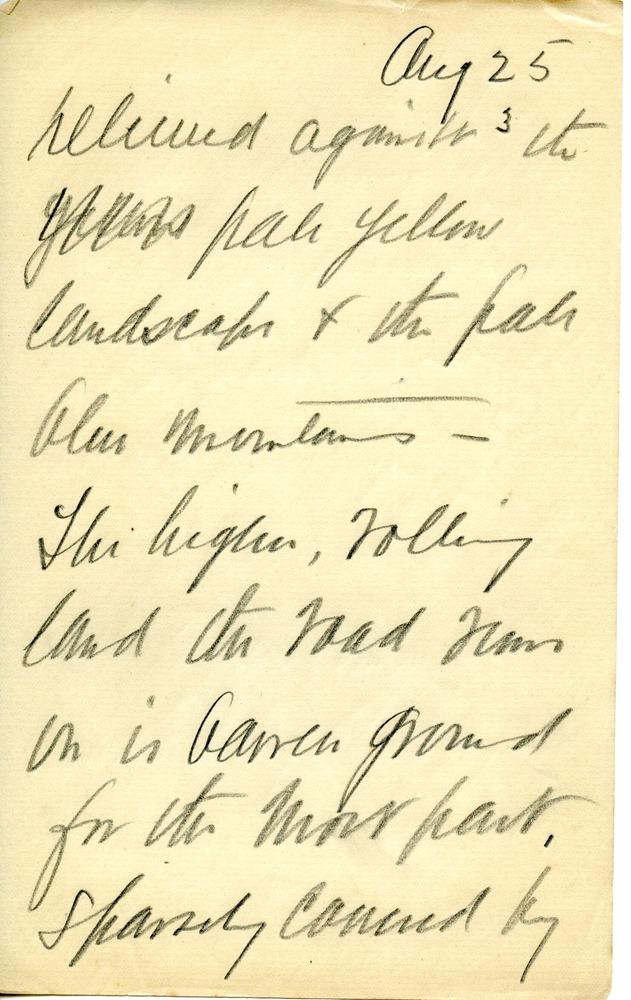 Aug 25
3
relieved against the
pale yellow
landscape & the pale
blue mountains —
The higher, rolling
land the road runs
on is barren ground
for the most part,
sparsely covered by